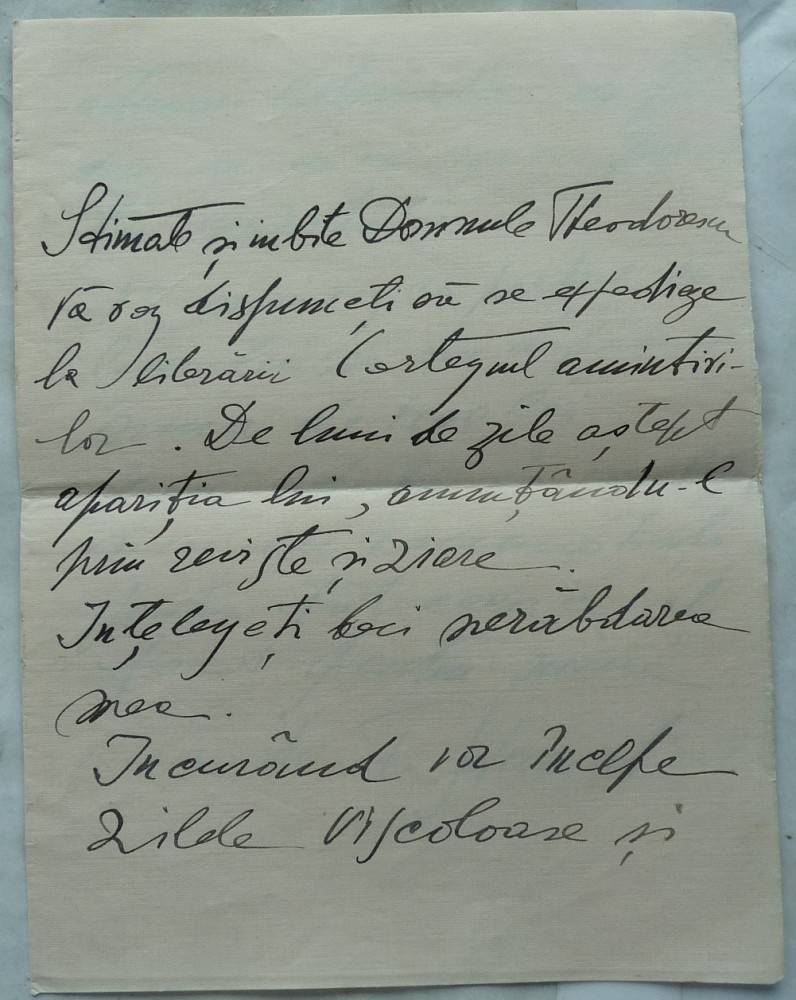 Stimate și iubite Domnule Theodorescu
Vă rog dispuneți să se expedieze
la librării Cortegiul amintiri-
lor. De luni de zile aștept
apariția lui, anunțându-l
prin reviste și ziare.
Ințelegeți deci nerăbdarea
mea.
Incurând vor începe
zilele viscoloase și